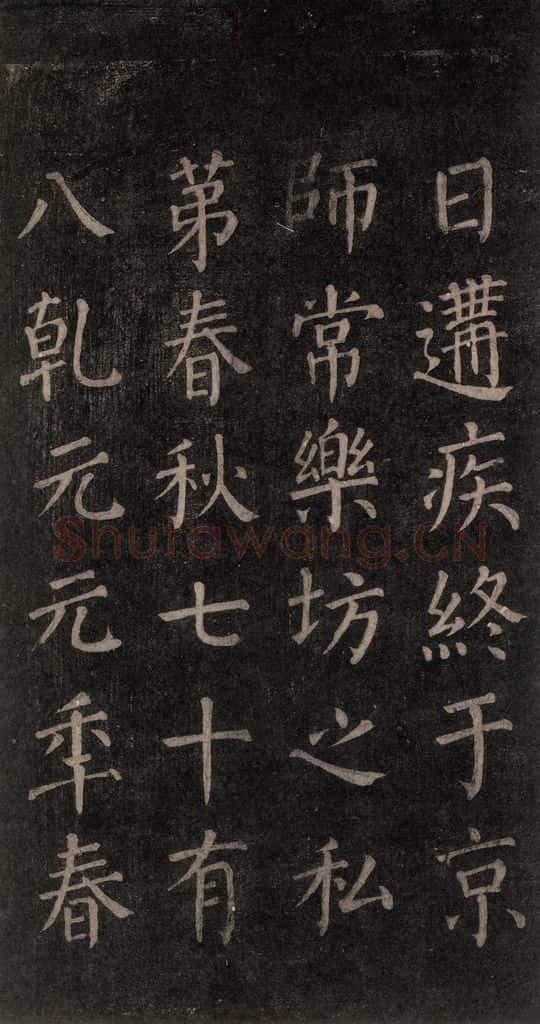 日遘疾終于京
師常樂坊之私
苐春秋七十有
八乾元元年春
Shufawang.CN